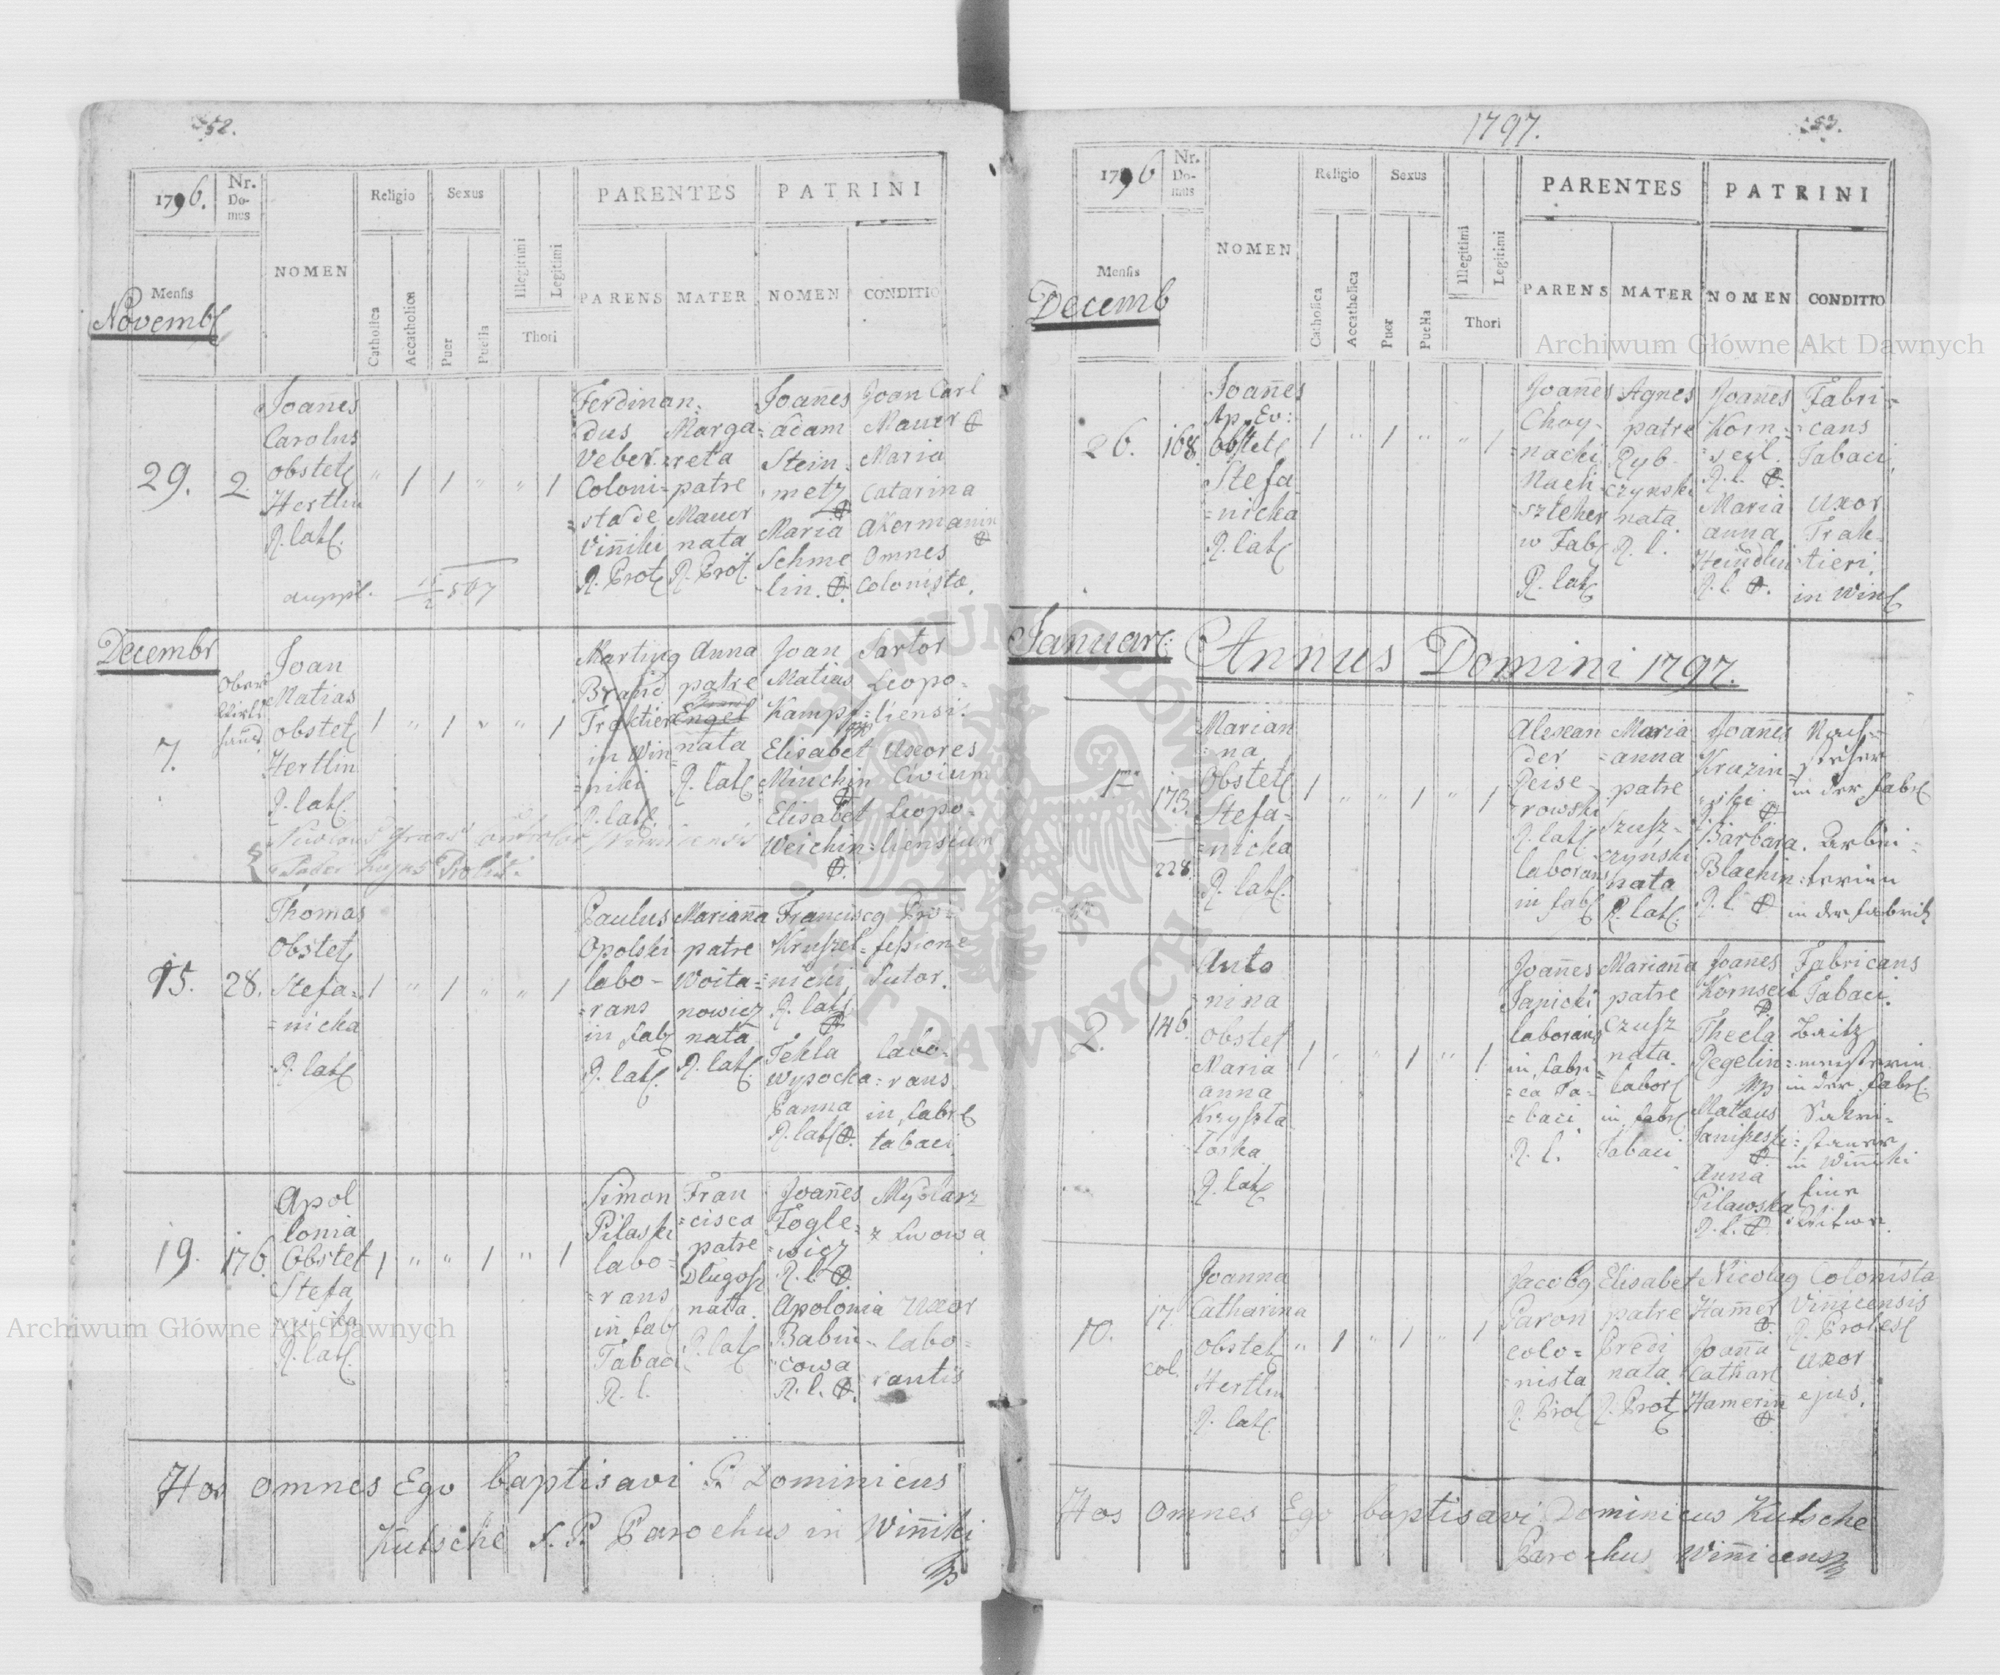 52.
1796.
Nr. Domus
NOMEN
Religio
Sexus
PARENTES
PATRINI
Mensis
Novemb
Catholica
Accatholica
Puer
Puella
Illegitimi
Legitimi
Thori
PARENS
MATER
NOMEN
CONDITIO
29.
2
Joañes
Carolus
obstet
Hertlin
R. lat.
" 1 1 " " 1
Ferdinan=
dus
Veber
Coloni=
=sta de
Viñiki
R. Prot
Marga=
reta
patre
Mauer
nata
R. Prot.
Joañes
adam
Stein=
metz
Maria
Schme
lin.
Joan Carl
Mauer
Maria
Catarina
Akermanin
Omnes
Colonistæ.
duppl.
507
Decembr
7.
Joan
Matias
obstet
Hertlin
R. lat.
1 " 1 " " 1
Brand
Traktier
in Win=
niki
R. lat.
Anna
patre
nata
R. lat
Joan
Matias
Kamp
Elisabet
Minchin
Elisabet
Weichin
Sartor
Leopo-
liensis.
Uxores
Civium
Leopo-
liensium
15.
28.
Thomas
Obstet
Stefa=
=nicka
R. lat
1 " 1 " " 1
Paulus
Opolski
labo-
=rans
in fab
R. lat.
Mariaña
patre
Woita=
nowicz
nata
R. lat.
Francisc9
Kruszel=
=nicki
R. lat
Tekla
Wysocka
Panna
R. lat
Pro-
fessione
Sutor.
labo-
=rans
in fabr
tabaci
19.
176.
Apol
lonia
Obstet
Stefa
nicka
R. lat.
1 " " 1 " 1
Simon
Pilaski
labo=
=rans
in fab
Tabaci
R. l.
Fran
=cisca
patre
Dlugosz
nata
R. lat
Joañes
Fogle=
=wicz
R. l.
Apolonia
Babin=
cowa
R. l.
Mydlarz
z Lwowa
Uxor
labo=
rantis
Hos omnes Ego baptisavi P. Dominicus
Kutsche S. P. Parochus in Wiñiki
1797.
53.
1796
Nr. Domus
NOMEN
Religio
Sexus
PARENTES
PATRINI
Mensis
Decemb
Catholica
Accatholica
Puer
Puella
Illegitimi
Legitimi
Thori
PARENS
MATER
NOMEN
CONDITIO
26.
168.
Joañes
Ap. Ev:
obstet
Stefa
=nicka
R. lat
1 " 1 " " 1
Joañes
Choy-
=nacki
w Fab
R. lat
Agnes
patre
Ryb-
czynski
nata
R. l.
Joañes
Korn=
R. l.
Maria
anna
Heindlin
R. l.
Fabri=
=cans
Tabaci
Uxor
Trak-
tieri
in Win
Januar: Annus Domini 1797.
173.
228.
Marian
=na
Obstet
Stefa=
=nicka
R. lat.
1 " " 1 " 1
Alexan
der
Peise
rowski
R. lat
laborans
in fab
Maria
=anna
patre
Szusz-
czynski
nata
R. lat.
Joañes
Krazin=
R. l.
Barbara
Blachin
R. l.
in der fabr
Arbei=
=terinn
in der fabrik
2.
146.
Anto
=nina
obstet
Maria
anna
Kryszta
Toska
R. lat
1 " " 1 " 1
Joañes
Janicki
laborans
in fabri
=ca Ta-
=baci
R. l.
Mariaña
patre
Czusz
nata
labor
in fabr
Tabaci
Joanes
Thecla
Regelin
Mataus
Janiszeski
Anna
Pilawska
R. l.
Fabricans
Tabaci.
meisterin
in der fabr
Sakri=
in Wiñicki
10.
17.
col.
Joanna
Catharina
obstet
Hertlin
R. lat
" 1 " 1 " 1
Jacob9
Paron
colo=
=nista
R. Prot
Elisabet
patre
Predi
nata
R. Prot
Nicolag
Hamer
Joaña
Cathar
Hamerin
Colonista
Viñicensis
R. Prot
uxor
ejus.
Hos omnes Ego baptisavi Dominicus Kutsche
Parochus Wiñicens
Archiwum Główne Akt Dawnych
Archiwum Główne Akt Dawnych
ARCHIWUM GŁÓWNE AKT DAWNYCH